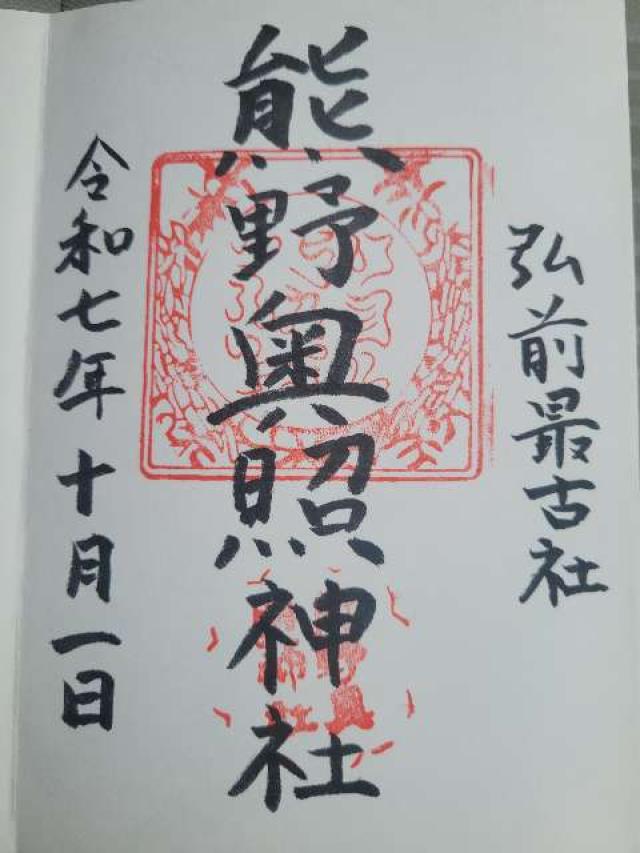 弘前最古社
熊野奥照神社
令和七年十月一日